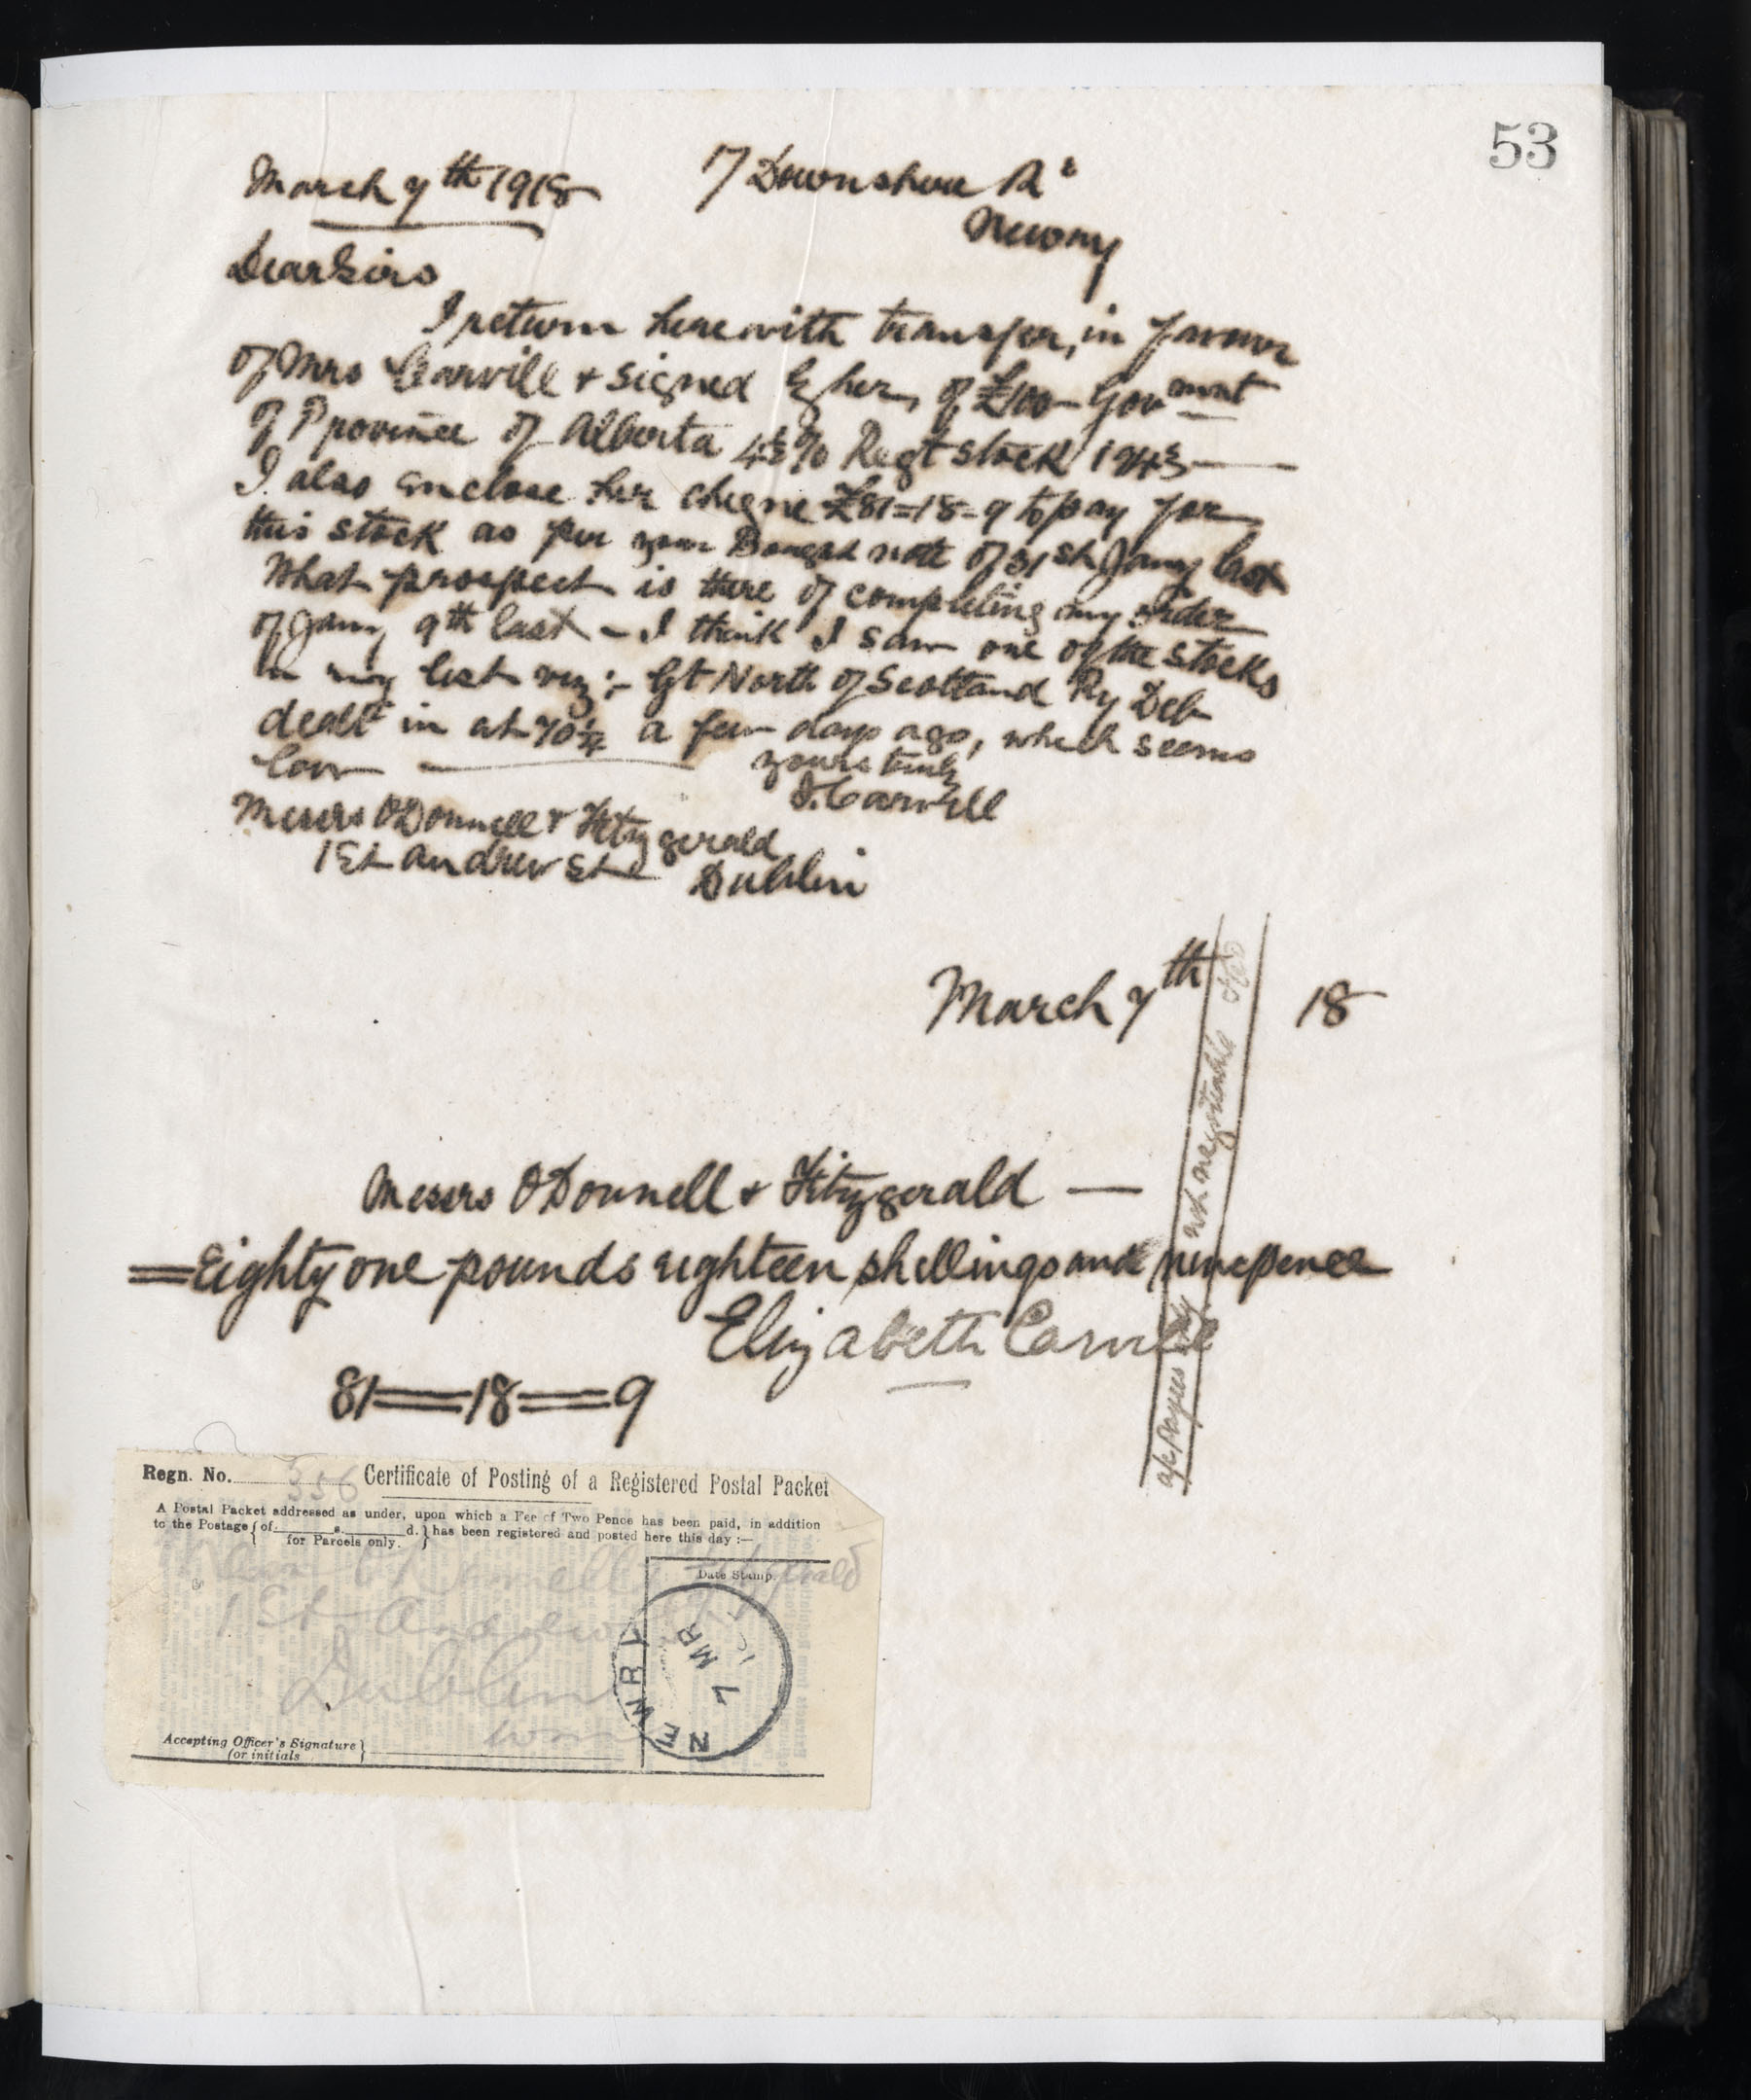 53
March 7th 1918
7 Downshire Rd
Newry
Dear Sirs
I return herewith transfer, in favour
of Mrs Carvill & signed by her, of £100 Govmnt
of Province of Alberta 4½% Regt stock 1943
I also enclose her cheque £81=18=9 to pay for
this stock as per your Bought note of 31st Jany last
What prospect is there of completing my order
of Jany 9th last – I think I saw one of the stocks
in my list viz:- Gt North of Scotland Ry Deb
dealt in at 70½ a few days ago, which seems
low
yours truly
J. Carvill
Messrs O'Donnell & Fitzgerald
1 St Andrew St
Dublin
March 7th 18
Messrs O'Donnell & Fitzgerald —
=Eighty one pounds eighteen shillings and ninepence
Elizabeth Carvill
81=18=9
a/c payees only not negotiable
Regn. No. 356 Certificate of Posting of a Registered Postal Packet
A Postal Packet addressed as under, upon which a Fee of Two Pence has been paid, in addition
to the Postage { of s. d. } has been registered and posted here this day :—
for Parcels only.
O'Donnell Fitzgerald
1 St Andrew St
Dublin
Date Stamp.
NEWRY
7 MR
Accepting Officer's Signature }
(or initials